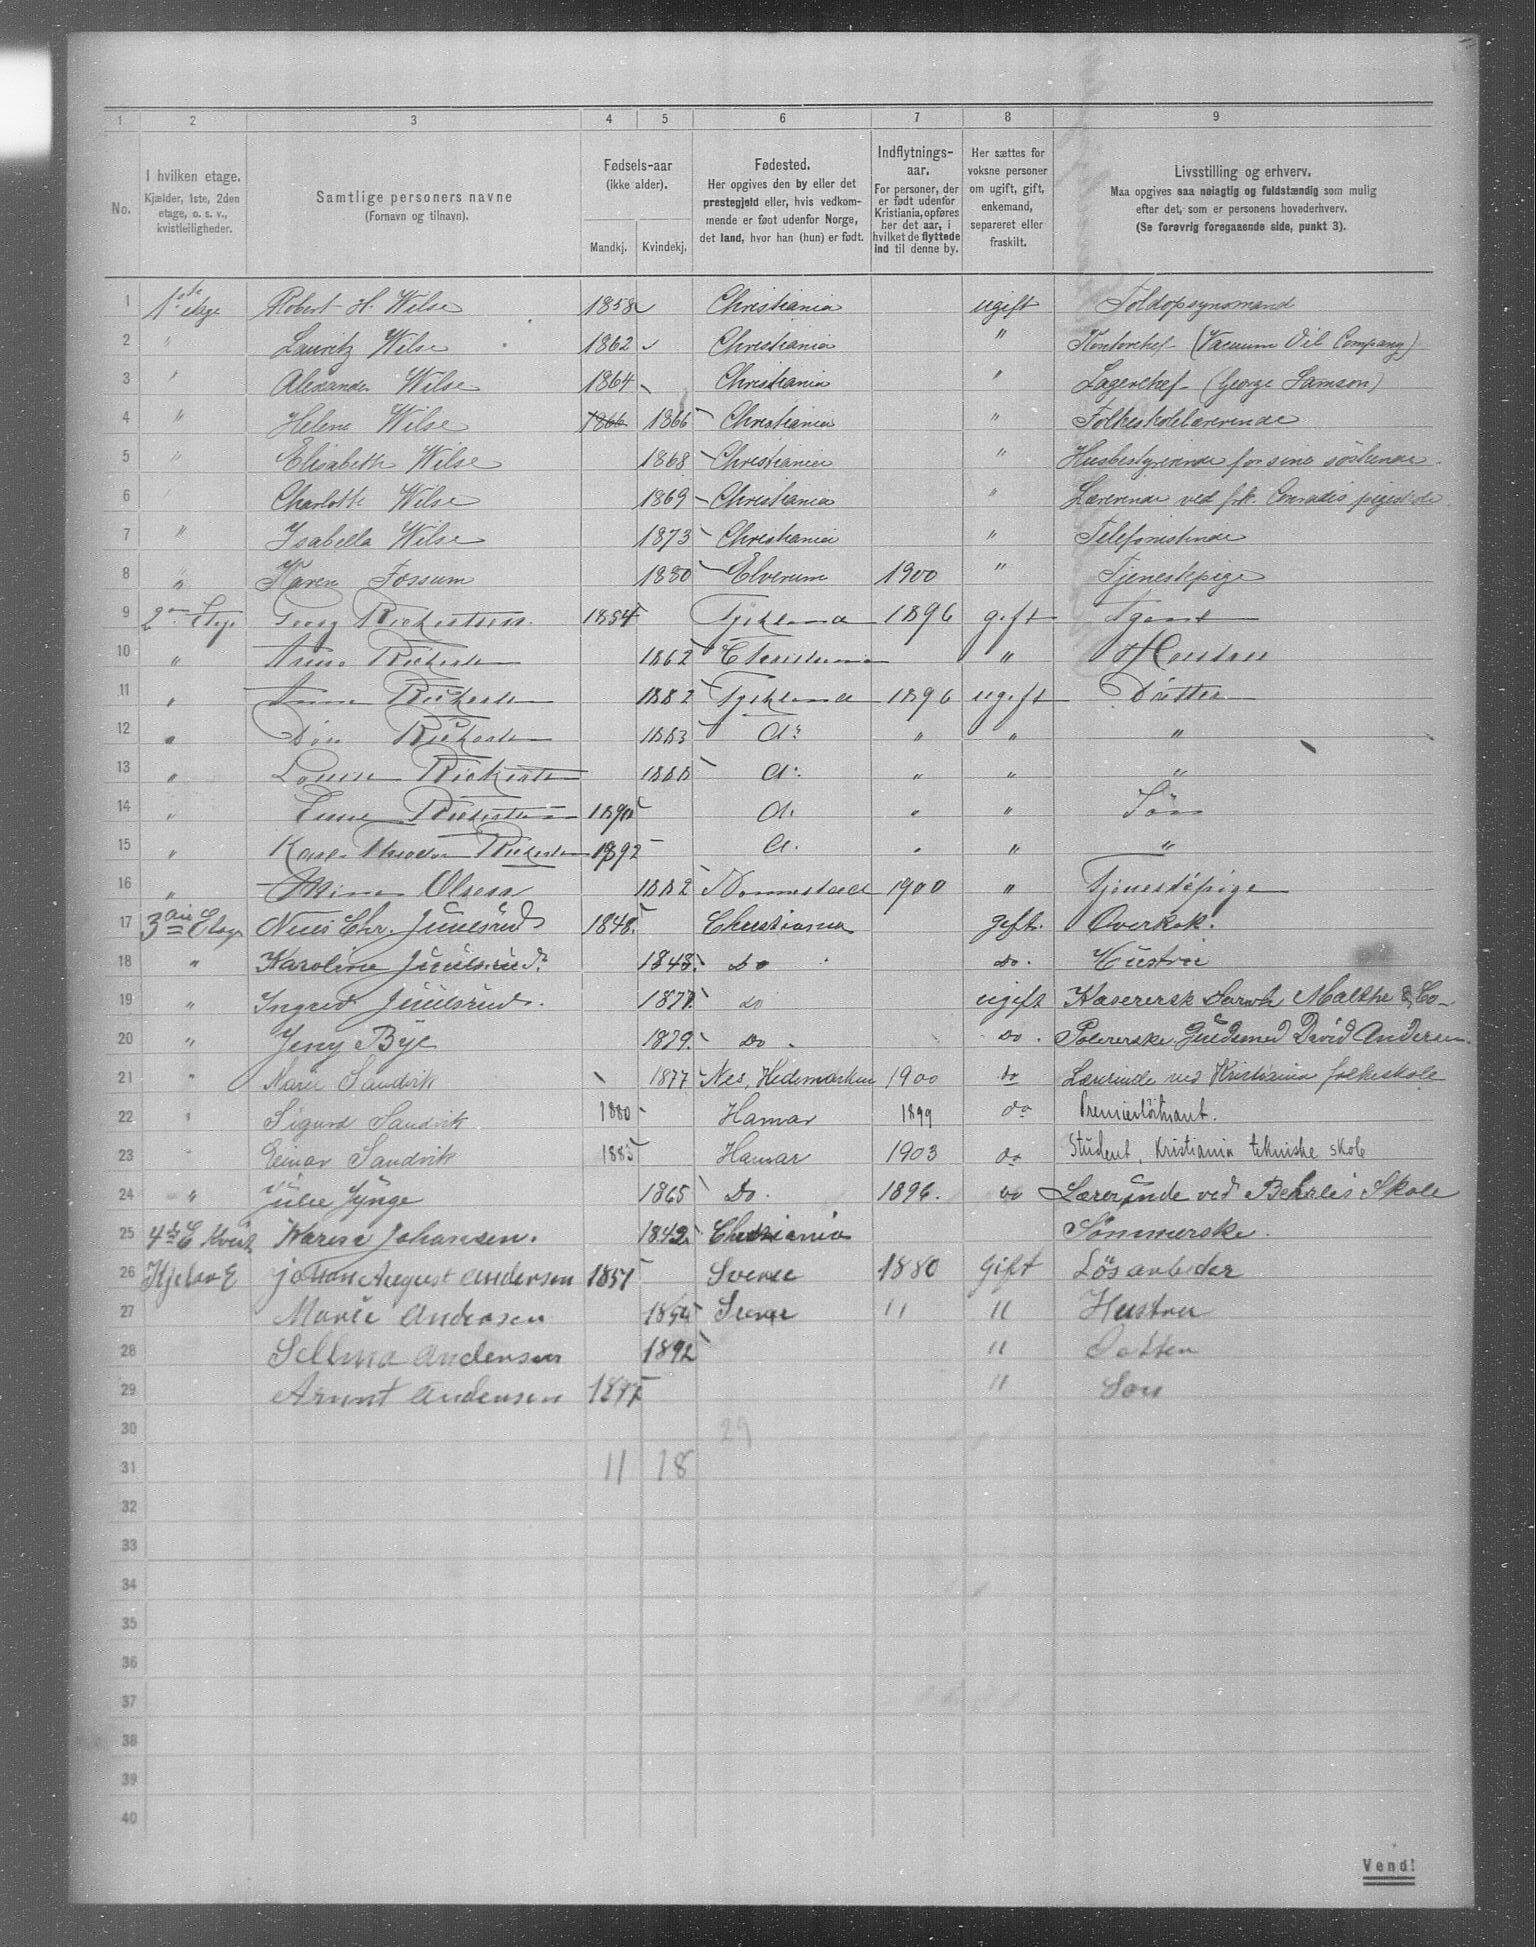 1 2 3 4 5 6 7 8 9
No.
I hvilken etage.
Kjælder, 1ste, 2den
etage, o. s. v.,
kvistleiligheder.
Samtlige personers navne
(Fornavn og tilnavn).
Fødsels-aar
(ikke alder).
Mandkj. Kvindekj.
Fødested.
Her opgives den by eller det
prestegjeld eller, hvis vedkom-
mende er født udenfor Norge,
det land, hvor han (hun) er født.
Indflytnings-
aar.
For personer, der
er født udenfor
Kristiania, opføres
her det aar, i
hvilket de flyttede
ind til denne by.
Her sættes for
voksne personer
om ugift, gift,
enkemand,
separeret eller
fraskilt.
Livsstilling og erhverv.
Maa opgives saa nøiagtig og fuldstændig som mulig
efter det, som er personens hovederhverv.
(Se forøvrig foregaaende side, punkt 3).
1 1ste etage Robert H. Wilse 1858 Christiania ugift Toldopsynsmand
2 " Lauritz Wilse 1862 Christiania " Kontorchef (Vacuum Oil Company)
3 " Alexander Wilse 1864 Christiania " Lagerchef (George Samson)
4 " Helene Wilse 1866 1866 Christiania " Folkeskolelærerinde
5 " Elisabeth Wilse 1868 Christiania " Husbestyrerinde for sine søskende.
6 " Charlotte Wilse 1869 Christiania " Lærerinde ved frk. Conradis pigeskole
7 " Isabella Wilse 1873 Christiania " Telefonistinde
8 " Karen Fossum 1880 Elverum 1900 " Tjenestepige
9 2en Etage Georg 1854 Tyskland 1896 gift Agent
10 " 1862 Christiania " Hustru
11 " 1882 Tyskland 1896 ugift Datter
12 " 1883 do " " "
13 " Louise 1888 do " " "
14 " 1890 do " " Søn
15 " Karl Theodor 1892 do " " "
16 " Olsen 1882 1900 " Tjenestepige
17 3die Etage Chr. Juulsrud 1848. Christiania gift. Overkok.
18 " Karoline Juulsrud. 1848. Do Do. Hustru
19 " Ingrid Juulsrud. 1877. do ugift Kasererske Malthe & Co
20 " Jeny Bye 1879. Do. Do. Polererske Guldsmed David Andersen.
21 " Marie Sandvik 1877 Nes, Hedemarken 1900 do Lærerinde ved Kristiania folkeskole
22 " Sigurd Sandvik 1880 Hamar 1899 do Premierløitnant.
23 " Einar Sandvik 1885 Hamar 1903 do Student, Kristiania tekniske skole
24 " Julie Lynge 1865 Do. 1896. do Lærerinde ved Berles Skole
25 4de E Kvist Karen Johansen. 1842 Christiania Sømmerske.
26 Kjelar E Johan August Andersen 1851 Sverie 1880 Gift Løsarbeder
27 Marie Andersen Sverie " " Hustru
28 Sellma Andersen 1892 " Datter
29 Andersen " Søn
30 29
31 11 18
32
33
34
35
36
37
38
39
40
Vend!